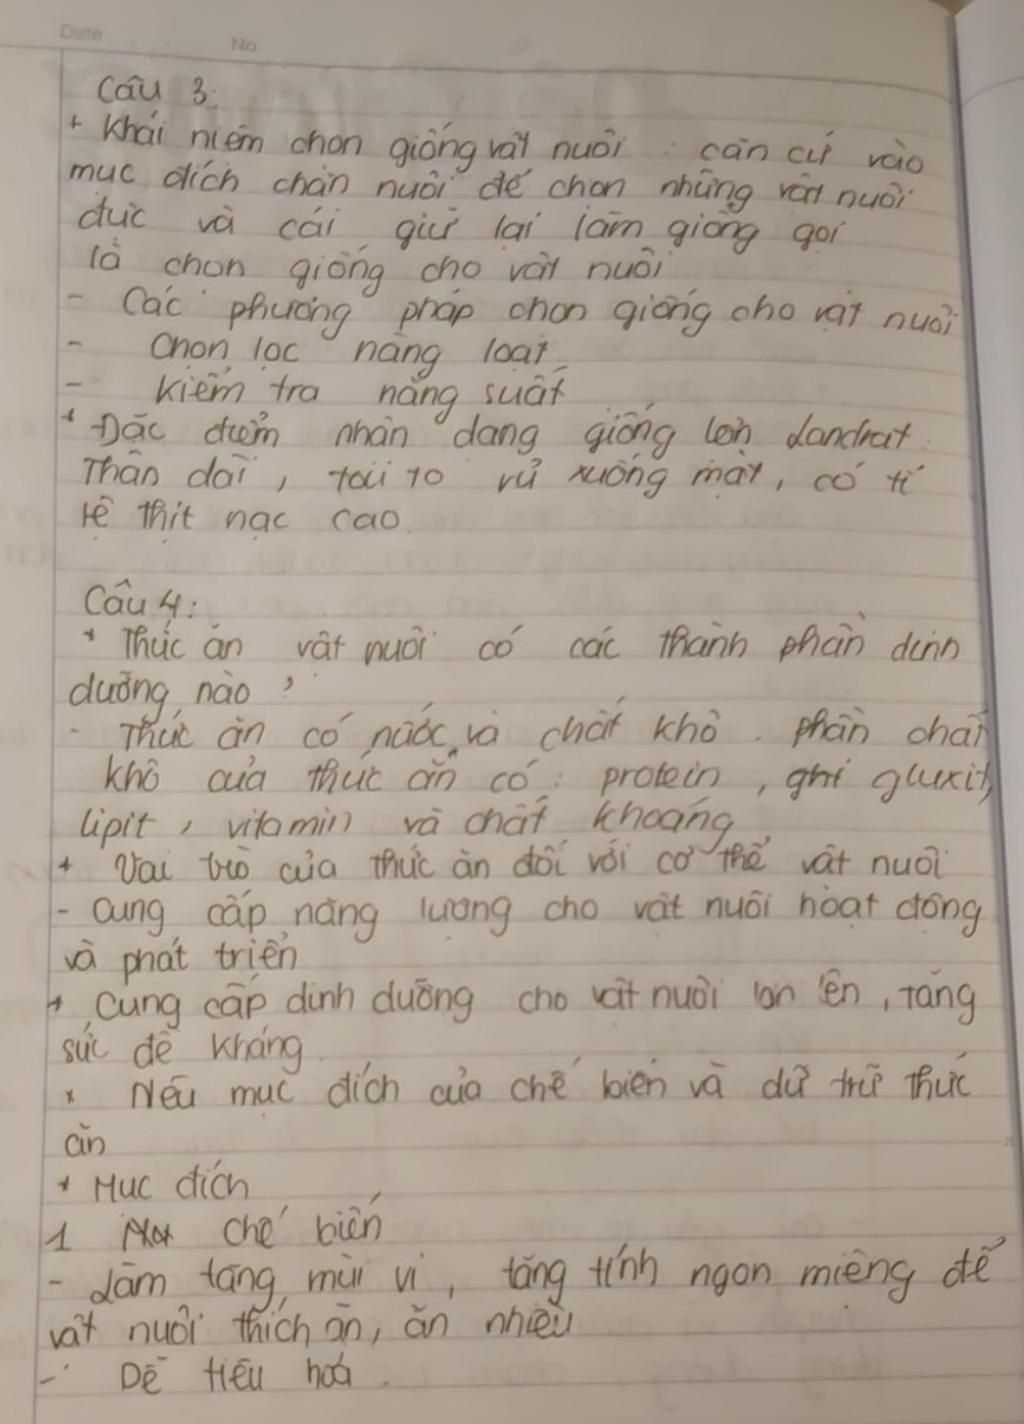 Date No.
Câu 3:
+ Khái niệm chọn giống vật nuôi: căn cứ vào
mục đích chăn nuôi để chọn những vật nuôi
đực và cái giữ lại làm giống gọi
là chọn giống cho vật nuôi
- Các phương pháp chọn giống cho vật nuôi
- Chọn lọc hàng loạt
- Kiểm tra năng suất
* Đặc điểm nhận dạng giống lợn Landrat:
Thân dài, tai to rủ xuống mặt, có tỉ
lệ thịt nạc cao.
Câu 4:
* Thức ăn vật nuôi có các thành phần dinh
dưỡng nào?
- Thức ăn có nước và chất khô. phần chất
khô của thức ăn có: protein, gluxit,
lipit, vitamin và chất khoáng
+ Vai trò của thức ăn đối với cơ thể vật nuôi
- Cung cấp năng lượng cho vật nuôi hoạt động
và phát triển
+ Cung cấp dinh dưỡng cho vật nuôi lớn lên, tăng
sức đề kháng
* Nêu mục đích của chế biến và dự trữ thức
ăn
* Mục đích
1 chế biến
- Làm tăng mùi vị, tăng tính ngon miệng để
vật nuôi thích ăn, ăn nhiều
- Dễ tiêu hoá.